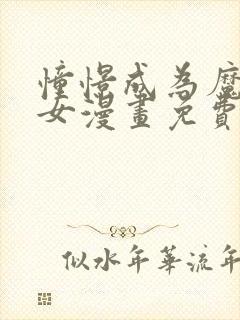 憧憬成為魔
女漫畫免費
似水年華流年